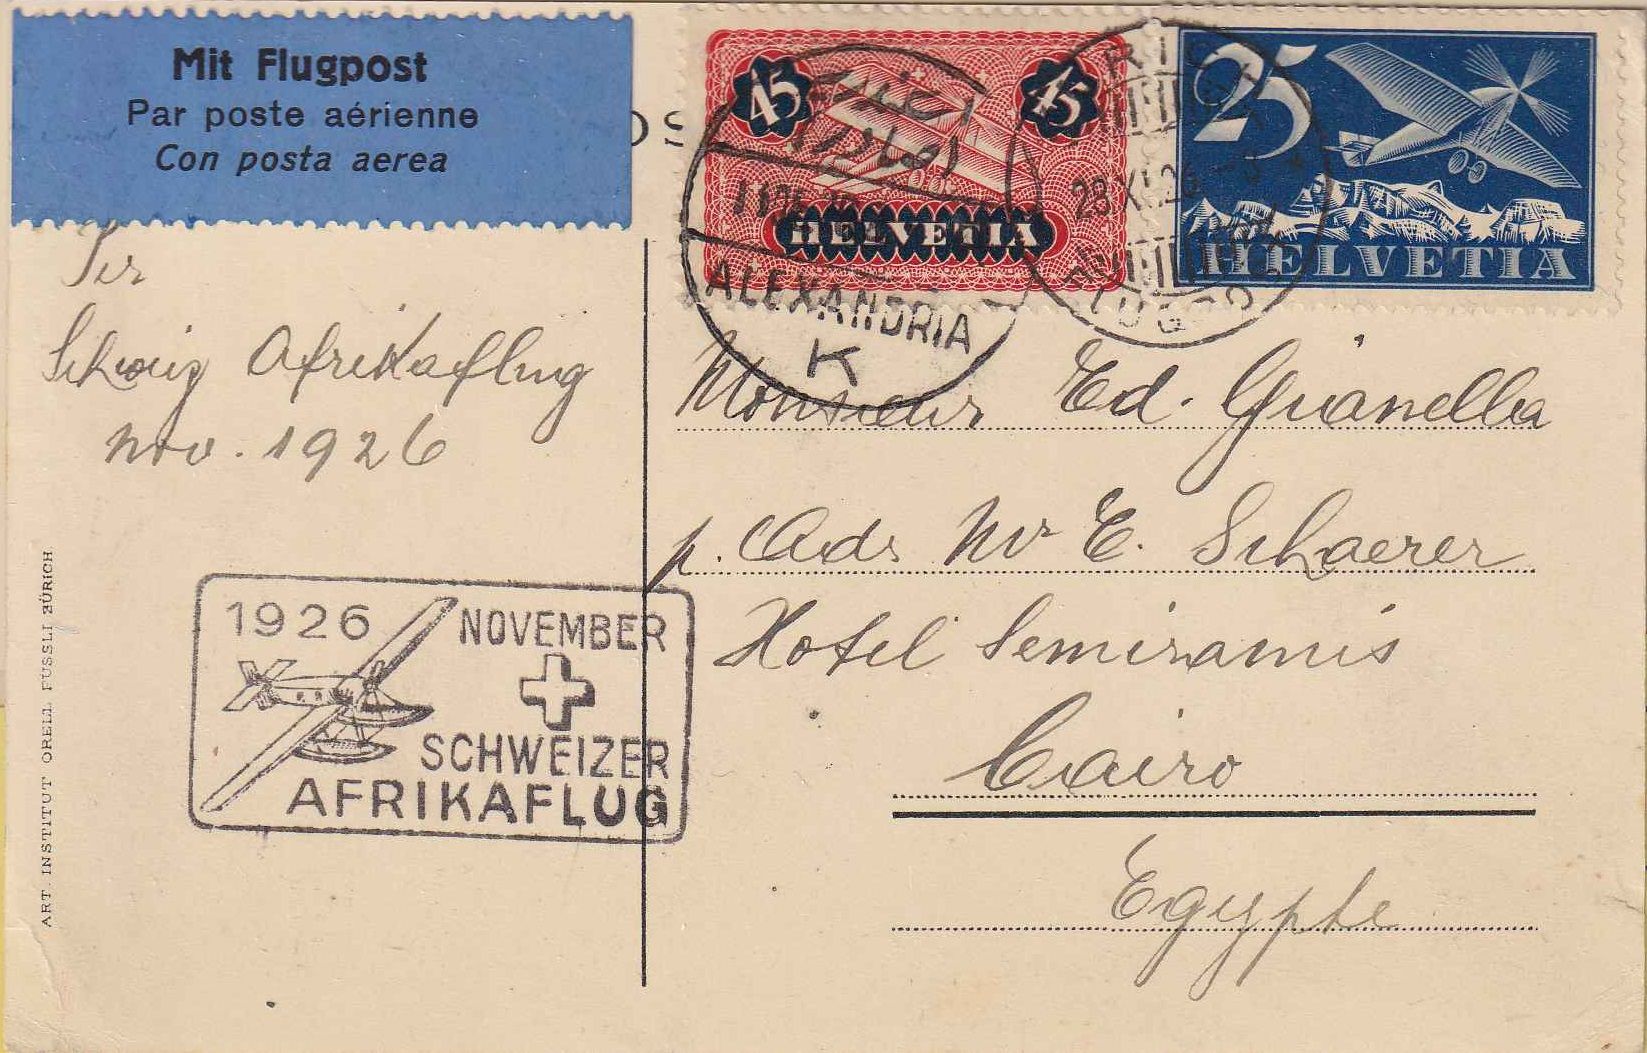 Mit Flugpost
Par poste aérienne
Con posta aerea
45 45
HELVETIA
25
HELVETIA
ALEXANDRIA
K
28.XI.26
Per
Schweiz Afrikaflug
nov. 1926
1926 NOVEMBER
SCHWEIZER
AFRIKAFLUG
Monsieur Ed. Gianella
p. Ads Mr E. Schaerer
Hotel Semiramis
Cairo
Egypte
ART. INSTITUT ORELL FÜSSLI ZÜRICH